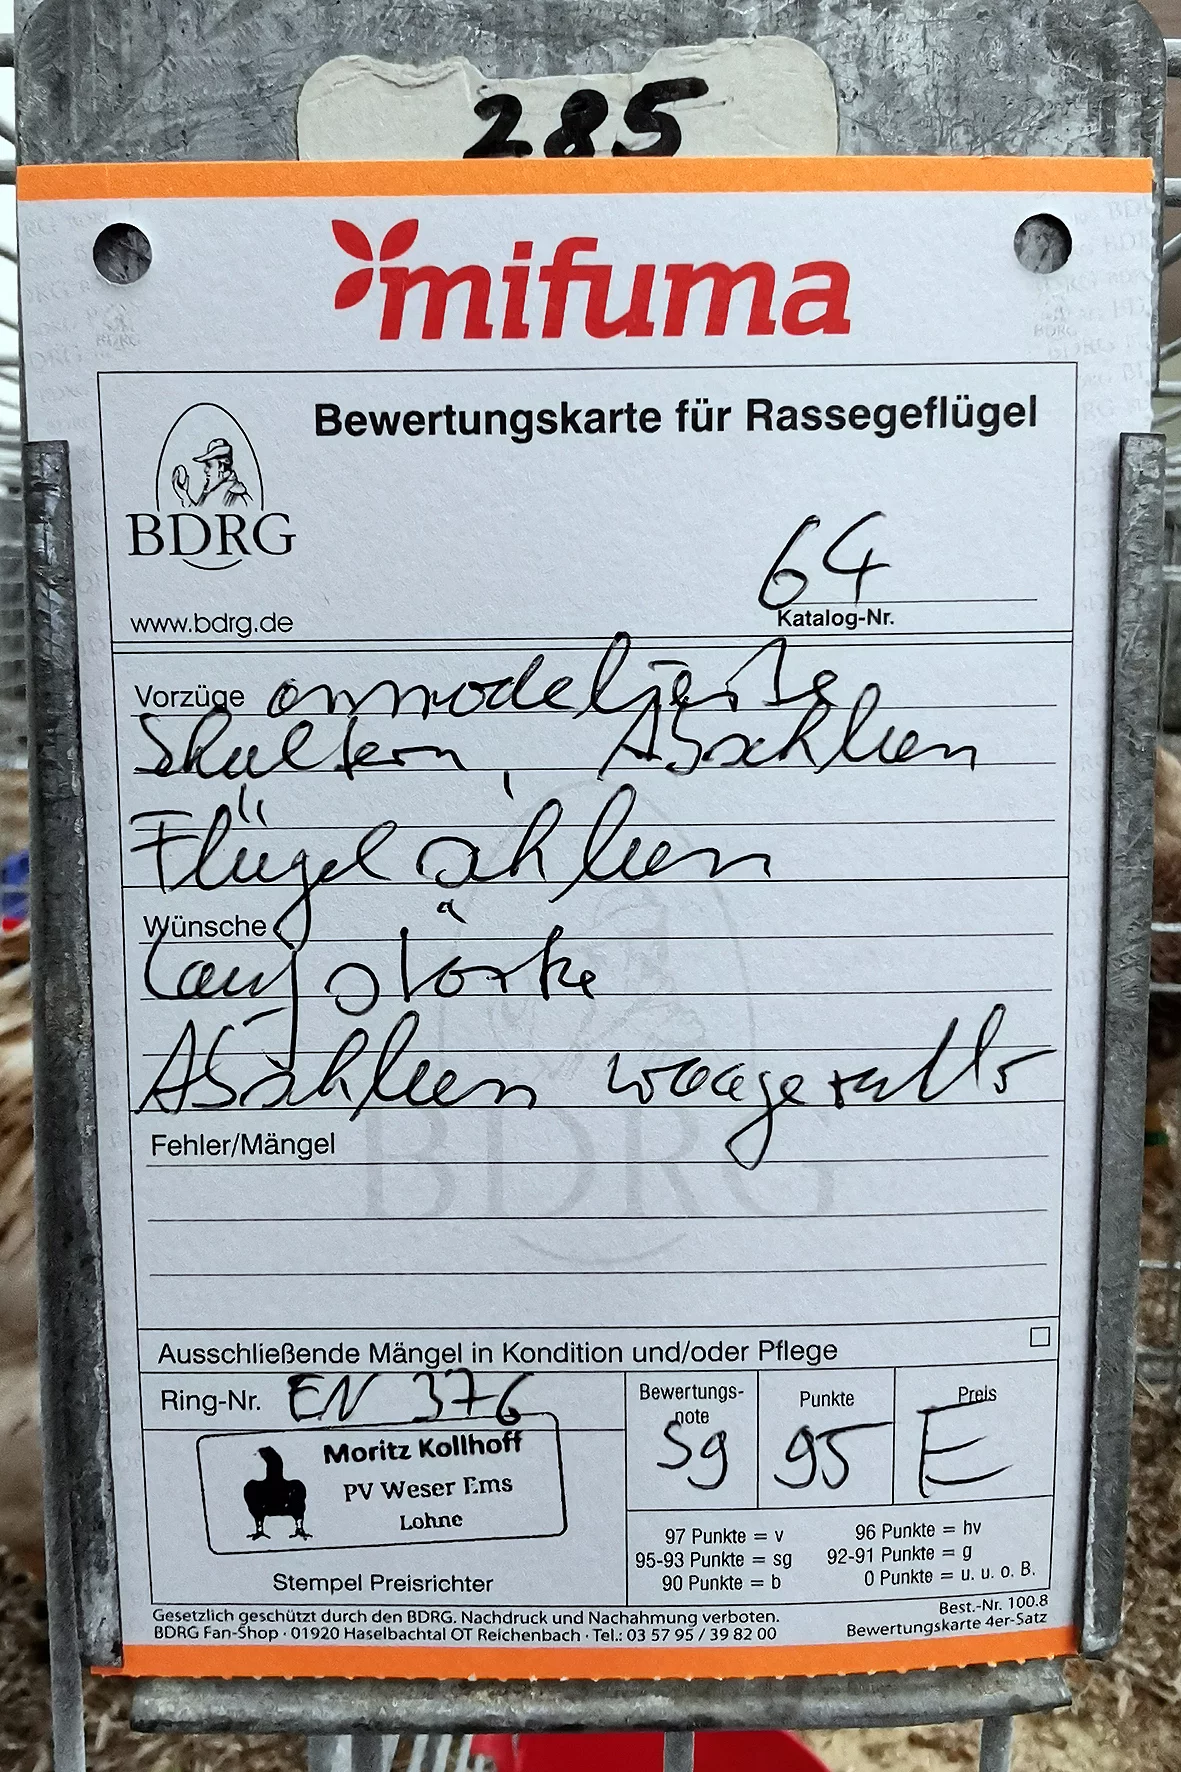 285
mifuma
Bewertungskarte für Rassegeflügel
BDRG
64
www.bdrg.de
Katalog-Nr.
Vorzüge
Schultern, Abschluss
Flügel
Wünsche
Lauf stärke
Abschluss waagerecht
Fehler/Mängel
BDRG
Ausschließende Mängel in Kondition und/oder Pflege
Ring-Nr. EN 376
Bewertungs-
note
Punkte
Preis
Sg 95 E
Moritz Kollhoff
PV Weser Ems
Lohne
97 Punkte = v 96 Punkte = hv
95-93 Punkte = sg 92-91 Punkte = g
90 Punkte = b 0 Punkte = u. u. o. B.
Stempel Preisrichter
Gesetzlich geschützt durch den BDRG. Nachdruck und Nachahmung verboten.
BDRG Fan-Shop · 01920 Haselbachtal OT Reichenbach · Tel.: 03 57 95 / 39 82 00
Best.-Nr. 100.8
Bewertungskarte 4er-Satz